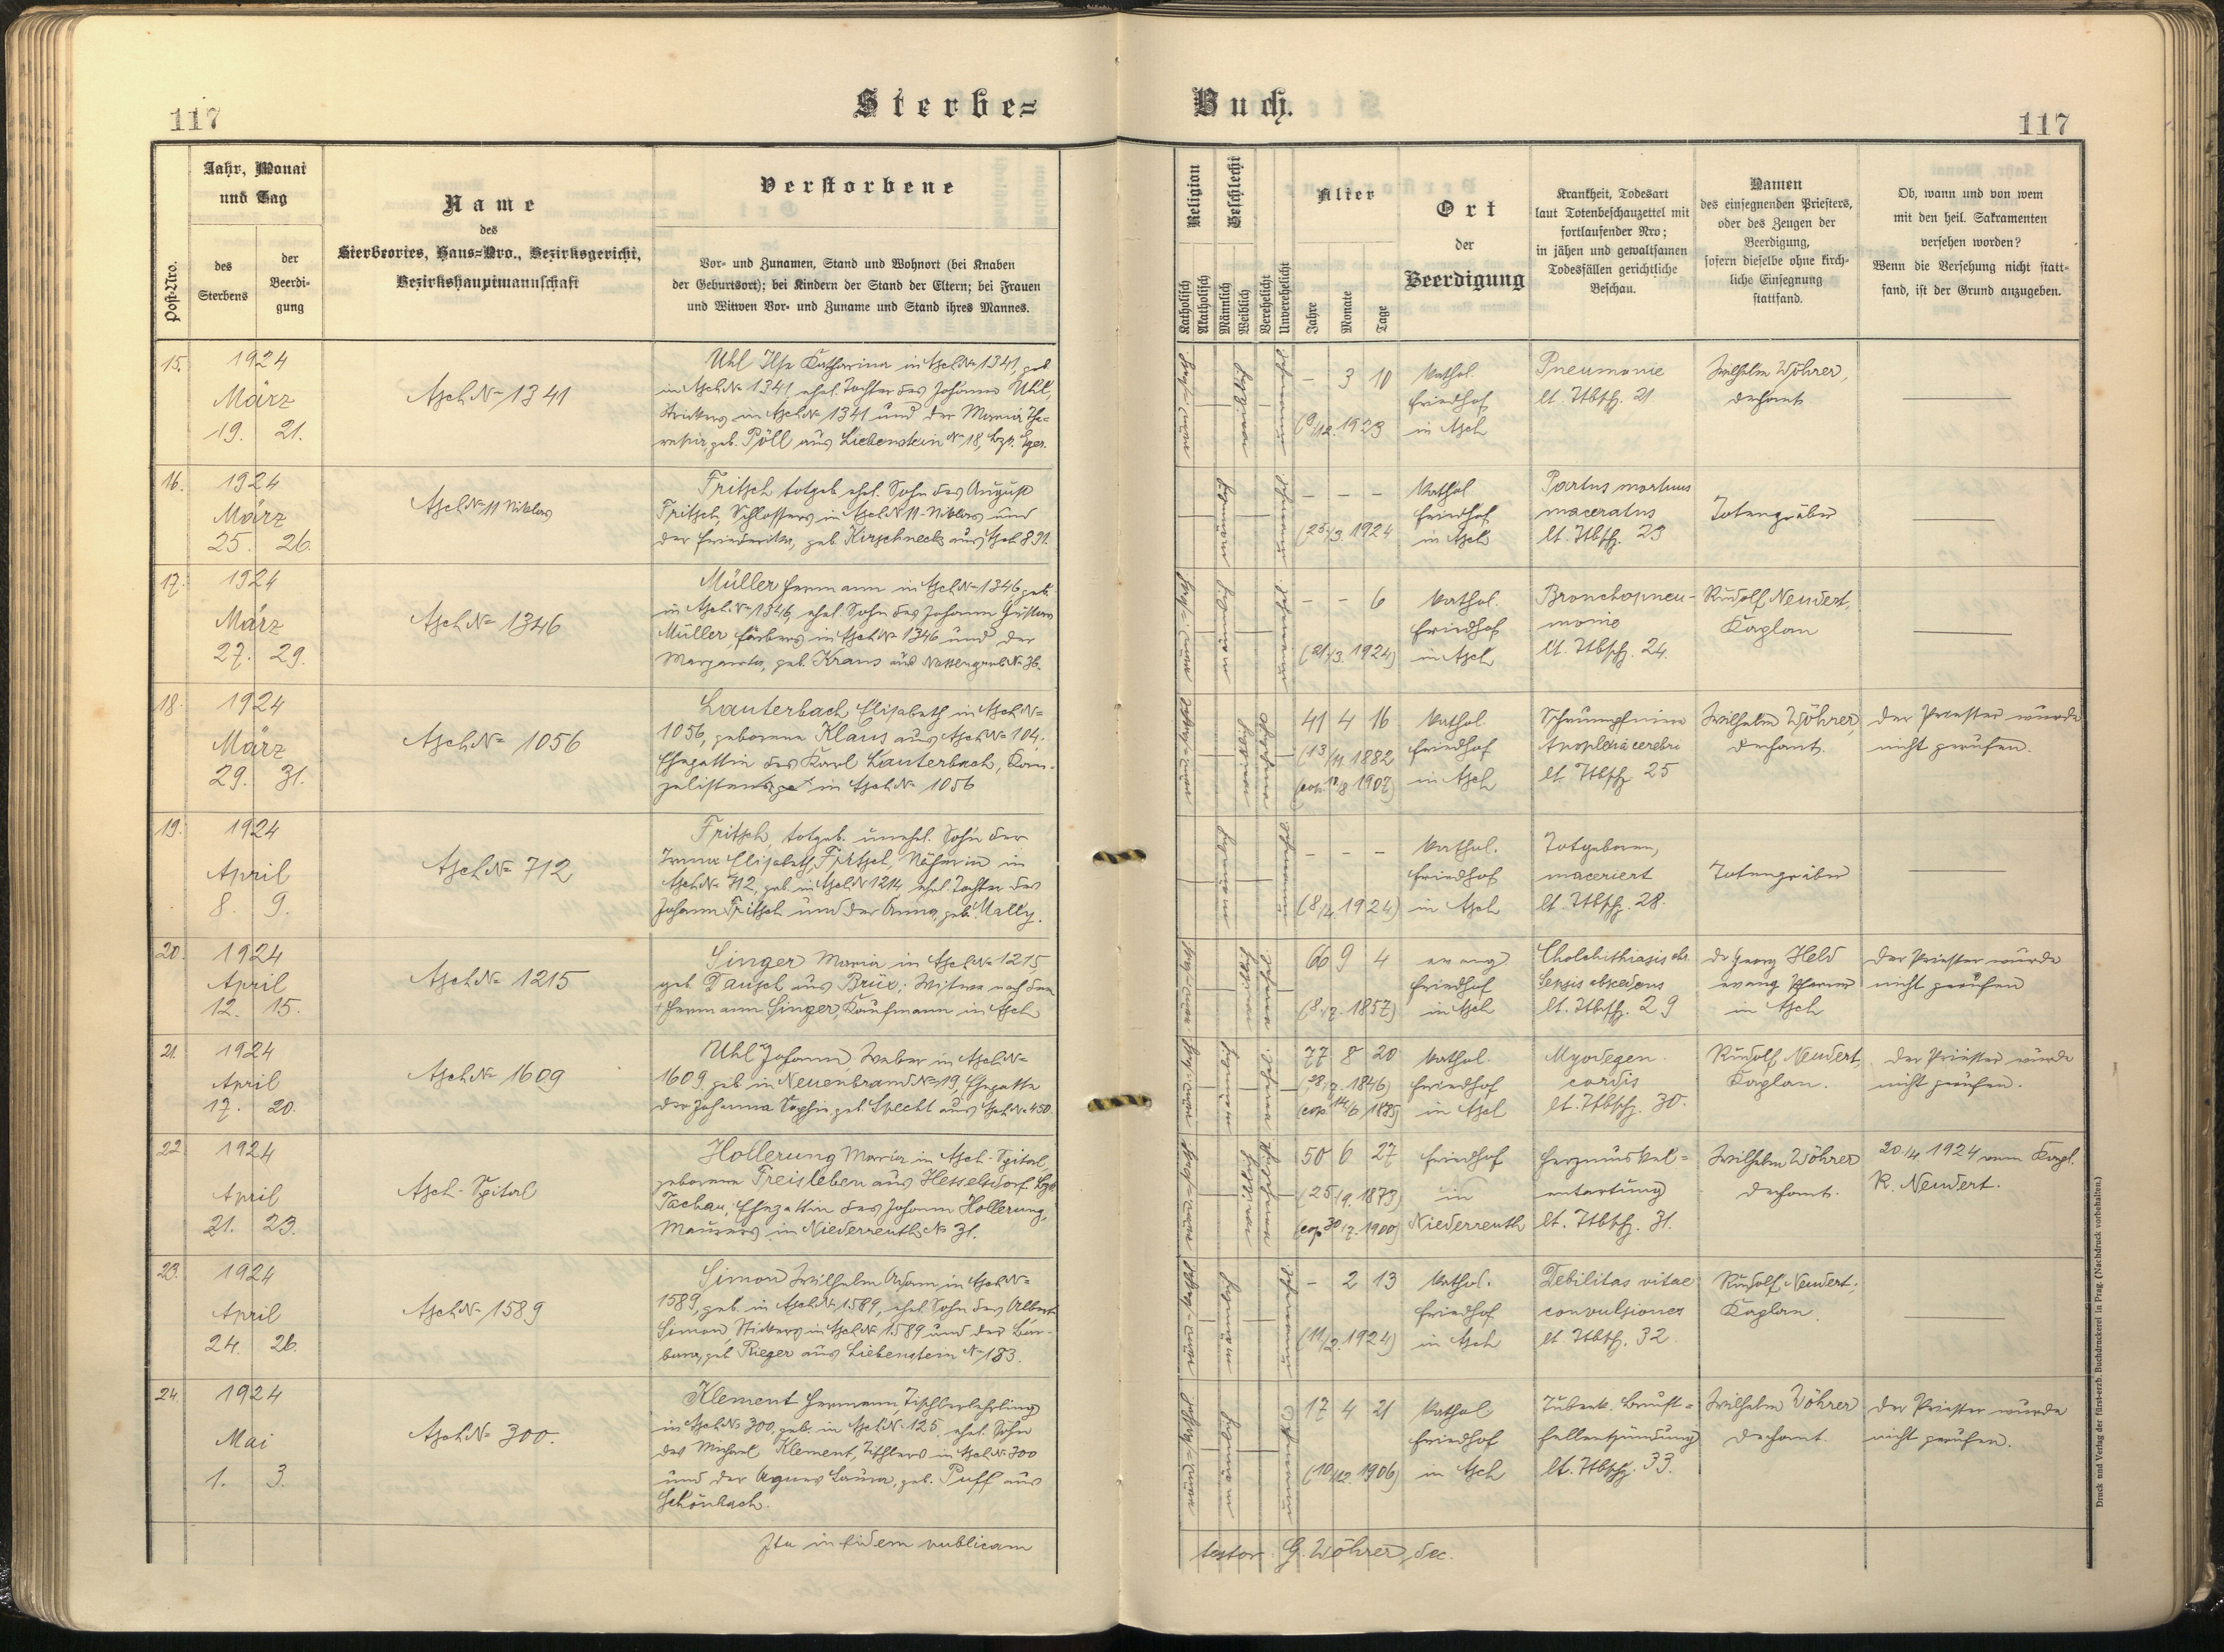 117
Sterbe=
Buch.
117
Post-Nro.
Jahr, Monat
und Tag
des
Sterbens
der
Beerdi-
gung
Name
des
Sterbeortes, Haus=Nro., Bezirksgericht,
Bezirkshauptmannschaft
Verstorbene
Vor- und Zunamen, Stand und Wohnort (bei Knaben
der Geburtsort); bei Kindern der Stand der Eltern; bei Frauen
und Witwen Vor- und Zuname und Stand ihres Mannes.
Religion
Katholisch
Akatholisch
Geschlecht
Männlich
Weiblich
Verehelicht
Unverehelicht
Alter
Jahre
Monate
Tage
Ort
der
Beerdigung
Krankheit, Todesart
laut Totenbeschauzettel mit
fortlaufender Nro;
in jähen und gewaltsamen
Todesfällen gerichtliche
Beschau.
Namen
des einsegnenden Priesters,
oder des Zeugen der
Beerdigung,
sofern dieselbe ohne kirch-
liche Einsegnung
stattfand.
Ob, wann und von wem
mit den heil. Sakramenten
versehen worden?
Wenn die Versehung nicht statt-
fand, ist der Grund anzugeben.
15. 1924
März
19. 21.
Asch No 1341
Uhl Ilse Katharina in Asch No 1341, geb
in Asch No 1341, ehel. Tochter des Johann Uhl,
Strickers in Asch No 1341 und der Maria The-
resia, geb. Pöll aus Liebenstein No 18, Bzp. Eger.
katholisch weiblich unverehelicht
– 3 10
(9/12. 1923
kathol.
Friedhof
in Asch
Pneumonie
lt. Ttbsch. 21
Wilhelm Wöhrer,
Dechant
16. 1924
März
25. 26.
Asch No 11 Niklas
Fritsch totgeb. ehel. Sohn des August
Fritsch, Schlossers in Asch No 11-Niklas und
der Friederika, geb. Kirschneck aus Asch 891.
männlich
– – –
(25./3. 1924
kathol
Friedhof
in Asch
Partus mortuus
maceratus
lt. Ttbsch. 23
Totengräber
17. 1924
März
27. 29.
Asch No 1346
Müller Hermann in Asch No 1346 geb.
in Asch No 1346, ehel. Sohn des Johann Gustav
Müller, Färbers in Asch No 1346 und der
Margareta, geb. Kraus aus Nassengrub No 36.
katholisch männlich unverehelicht
– – 6
(21./3. 1924)
kathol.
Friedhof
in Asch
Bronchopneu-
monie
lt. Ttbsch. 24.
Rudolf Neudert,
Kaplan
18. 1924
März
29. 31.
Asch No 1056
Lauterbach Elisabeth in Asch No
1056, geborene Klaus aus Asch No 104.
Ehegattin des Karl Lauterbach, Kan-
zelisten in Asch No 1056
katholisch weiblich verehelicht
41 4 16
(13/11 1882
kathol.
Friedhof
in Asch
Schrumpfniere
Apoplexia cerebri
lt. Ttbsch 25
Wilhelm Wöhrer,
Dechant.
Der Priester wurde
nicht gerufen.
19. 1924
April
8. 9.
Asch No 712
Fritsch, totgeb. unehel. Sohn der
Irma Elisabeth Fritsch, Näherin in
Asch No 712, geb. in Asch No 1214 ehel. Tochter des
Johann Fritsch und der Anna, geb. Mally.
männlich unverehelicht
– – –
(8/4. 1924)
kathol.
Friedhof
in Asch
Totgeboren,
maceriert
lt. Ttbsch. 28.
Totengräber
20. 1924
April
12. 15.
Asch No 1215
Singer Maria in Asch No 1215
geb Tausch aus Brüx; Witwe nach dem
Hermann Singer, Kaufmann in Asch
66 9 4
(8./7. 1857)
evang.
Friedhof
in Asch
lt. Ttbsch. 29
Dr Georg Held
evang Pfarrer
in Asch
Der Priester wurde
nicht gerufen
21. 1924
April
17. 20.
Asch No 1609
Uhl Johann, Weber in Asch No
1609 geb in Neuenbrand No 19, Ehegatte
der Johanna Sophia geb. Specht aus Asch No 450.
77 8 20
(28./7. 1846)
(cop. 14/6 1875)
kathol.
Friedhof
in Asch
Myodegen.
cordis
lt. Ttbsch. 30.
Rudolf Neudert,
Kaplan.
Der Priester wurde
nicht gerufen.
22 1924
April
21. 23.
Asch-Spital
Hollerung Maria in Asch-Spital,
geborene Freisleben aus Hesselsdorf Bzk
Tachau; Ehegattin des Johann Hollerung,
Maurers in Niederreuth No 31.
50 6 27
(25/9. 1873)
(cop 30/7. 1900)
Friedhof
in
Niederreuth
Herzmuskel=
entartung
lt. Ttbsch. 31.
Wilhelm Wöhrer
Dechant.
20./4 1924 vom Kapl.
R. Neudert.
23. 1924
April
24. 26.
Asch No 1589
Simon Wilhelm Adam in Asch No
1589, geb. in Asch No 1589, ehel. Sohn des Albert
Simon, Stickers in Asch No 1589 und der Bar-
bara, geb Rieger aus Liebenstein No 183.
– 2 13
(11/2. 1924)
kathol.
Friedhof
in Asch
Debilitas vitae
convulsiones
lt. Ttbsch. 32.
Rudolf Neudert,
Kaplan.
24. 1924
Mai
1. 3.
Asch No 300.
Klement Hermann, Tischlerlehrling
in Asch No 300, geb. in Asch No 125, ehel. Sohn
des Michael Klement, Tischlers in Asch No 300
und der Agnes Laura, geb. Puff aus
Schönbach.
17 4 21
(10/12. 1906)
kathol
Friedhof
in Asch
Tuberk. Bauch=
fellentzündung
lt. Ttbsch. 33.
Wilhelm Wöhrer
Dechant
Der Priester wurde
nicht gerufen.
Ita in fidem publicam
testor G. Wöhrer, dec.
Druck und Verlag der fürst-erzb. Buchdruckerei in Prag. (Nachdruck vorbehalten.)